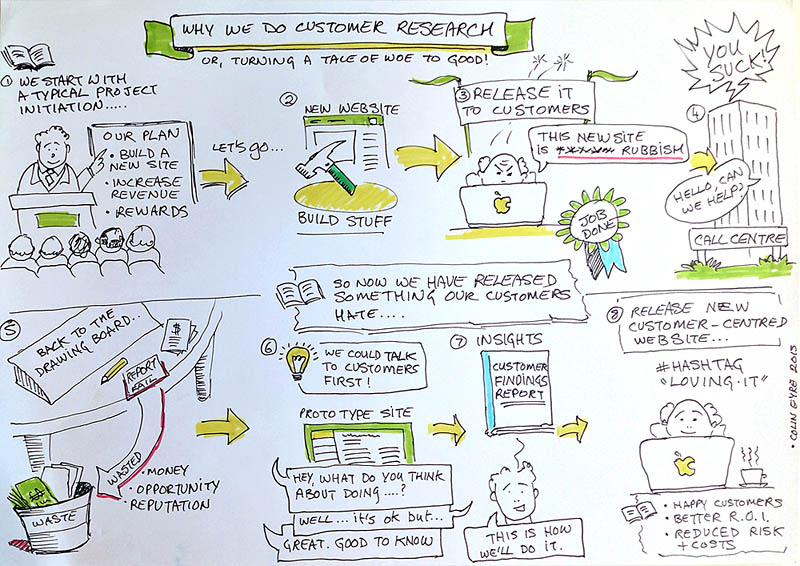 WHY WE DO CUSTOMER RESEARCH
OR, TURNING A TALE OF WOE TO GOOD!
1 WE START WITH
A TYPICAL PROJECT
INITIATION.....
OUR PLAN
• BUILD A
NEW SITE
• INCREASE
REVENUE
• REWARDS
LET'S go...
2 NEW WEBSITE
BUILD STUFF
3 RELEASE IT
TO CUSTOMERS
THIS NEW SITE
IS ******* RUBBISH
JOB
DONE
4
YOU
SUCK!
HELLO, CAN
WE HELP?
CALL CENTRE
SO NOW WE HAVE RELEASED
SOMETHING OUR CUSTOMERS
HATE....
5
BACK TO THE
DRAWING BOARD..
$
REPORT
FAIL
WASTED
• MONEY
• OPPORTUNITY
• REPUTATION
WASTE
6
WE COULD TALK
TO CUSTOMERS
FIRST!
PROTOTYPE SITE
HEY, WHAT DO YOU THINK
ABOUT DOING....?
WELL... it's ok but...
GREAT. GOOD TO KNOW
7 INSIGHTS
CUSTOMER
FINDINGS
REPORT
THIS IS HOW
WE'LL DO IT.
8 RELEASE NEW
CUSTOMER-CENTRED
WEBSITE...
#HASHTAG
"LOVING·IT"
• HAPPY CUSTOMERS
• BETTER R.O.I.
• REDUCED RISK
+ COSTS
• COLIN EYRE 2013